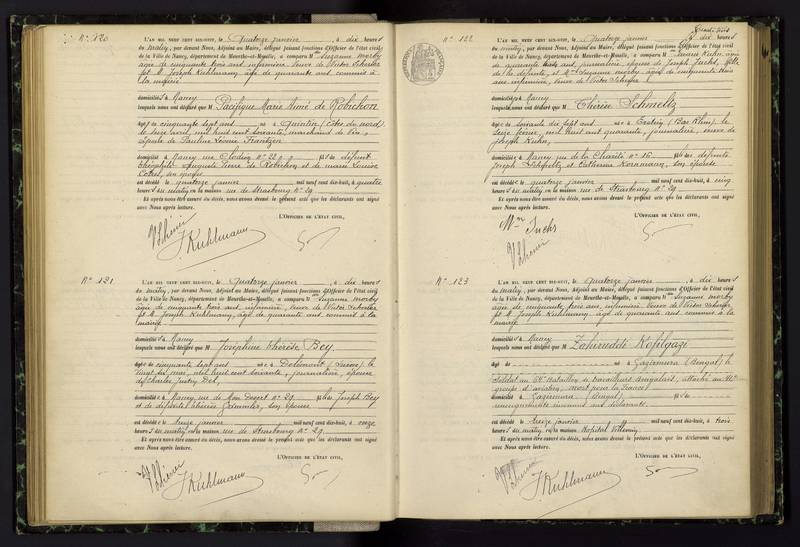 N° 120
L'AN MIL NEUF CENT DIX-HUIT, le quatorze janvier, à dix heures
du matin, par devant Nous, Adjoint au Maire, délégué faisant fonctions d'Officier de l'état civil
de la Ville de Nancy, département de Meurthe-et-Moselle, a comparu Mme Suzanne Morby
âgée de cinquante trois ans, infirmière, veuve de Victor
et M. Joseph Kuhlmann, âgé de quarante ans commis à
la mairie
domiciliés à Nancy
lesquels nous ont déclaré que M Pacifique Marie Aimé de Robichon
âgé de cinquante sept ans né à Quintin (Côtes du nord)
le seize avril mil huit cent soixante, marchand de vin,
époux de Pauline Léonie Frantzen
domicilié à Nancy rue Clodion n° 22 fils de défunt
Théophile Auguste Pierre de Robichon et de Marie Louise
son épouse
est décédé le quatorze janvier mil neuf cent dix-huit, à quatre
heures du matin en la maison rue de Strasbourg n° 29
Et après nous être assuré du décès, nous avons dressé le présent acte que les déclarants ont signé
avec Nous après lecture.
L'OFFICIER DE L'ÉTAT CIVIL,
J. Kuhlmann
N° 121
L'AN MIL NEUF CENT DIX-HUIT, le quatorze janvier, à dix heures
du matin, par devant Nous, Adjoint au Maire, délégué faisant fonctions d'Officier de l'état civil
de la Ville de Nancy, département de Meurthe-et-Moselle, a comparu Mme Suzanne Morby
âgée de cinquante trois ans, infirmière, veuve de Victor
et M. Joseph Kuhlmann, âgé de quarante ans commis à la
mairie
domiciliés à Nancy
lesquels nous ont déclaré que M Joséphine Thérèse Bey
âgée de cinquante sept ans née à
vingt mil huit cent soixante, journalière, épouse
de Charles
domiciliée à Nancy rue de Mon Désert n° 29 fille de Joseph Bey
et de Thérèse son épouse
est décédée le treize janvier mil neuf cent dix-huit, à onze
heures du matin en la maison rue de Strasbourg n° 29
Et après nous être assuré du décès, nous avons dressé le présent acte que les déclarants ont signé
avec Nous après lecture.
L'OFFICIER DE L'ÉTAT CIVIL,
J. Kuhlmann
N° 122
L'AN MIL NEUF CENT DIX-HUIT, le quatorze janvier, à dix heures
du matin, par devant Nous, Adjoint au Maire, délégué faisant fonctions d'Officier de l'état civil
de la Ville de Nancy, département de Meurthe-et-Moselle, a comparu M Kuhn, âgée
de quarante ans, journalière, épouse de Joseph Fuchs, fille
de la défunte, et Mme Suzanne Morby âgée de cinquante trois
ans infirmière, veuve de Victor
domiciliés à Nancy
lesquels nous ont déclaré que M Thérèse Schmeltz
âgée de soixante dix sept ans née à (Bas Rhin), le
seize février mil huit cent quarante, journalière, veuve de
Joseph Kuhn,
domiciliée à Nancy rue de la Charité n° 16 fille de défunts
Joseph et Catherine son épouse
est décédée le quatorze janvier mil neuf cent dix-huit, à cinq
heures du matin en la maison rue de Strasbourg n° 29
Et après nous être assuré du décès, nous avons dressé le présent acte que les déclarants ont signé
avec Nous après lecture.
L'OFFICIER DE L'ÉTAT CIVIL,
Fuchs
N° 123
L'AN MIL NEUF CENT DIX-HUIT, le quatorze janvier, à dix heures
du matin, par devant Nous, Adjoint au Maire, délégué faisant fonctions d'Officier de l'état civil
de la Ville de Nancy, département de Meurthe-et-Moselle, a comparu Mme Suzanne Morby
âgée de cinquante trois ans, infirmière, veuve de Victor
et M. Joseph Kuhlmann, âgé de quarante ans commis à la
mairie
domiciliés à Nancy
lesquels nous ont déclaré que M Zahireddi Kofilgazi
âgé de né à Gazirmura (Bengal) le
Soldat au Bataillon de travailleurs Bengalais, attaché au
groupe d'aviation, mort pour la France
domicilié à Gazirmura (Bengal) fils de
renseignements inconnus aux déclarants.
est décédé le treize janvier mil neuf cent dix-huit, à trois
heures du matin en la maison Hôpital Villemin
Et après nous être assuré du décès, nous avons dressé le présent acte que les déclarants ont signé
avec Nous après lecture.
L'OFFICIER DE L'ÉTAT CIVIL,
J. Kuhlmann